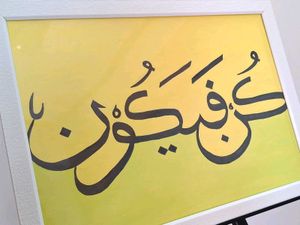 كُن فَيَكُون